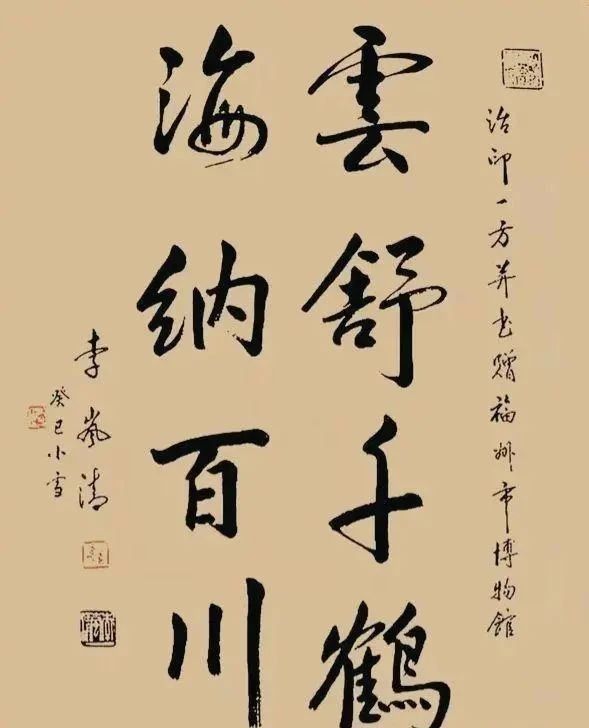 治印一方并书赠福州市博物馆
雲舒千鶴
海纳百川
李岚清
癸巳小雪